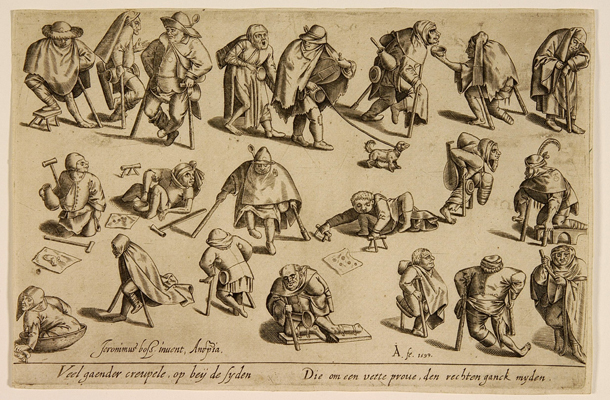 Jeronimus boss. inuent, Anopia.
À. fe. 1598.
Veel gaender creupele, op beÿ de syden
Die om een vette proue, den rechten ganck myden.